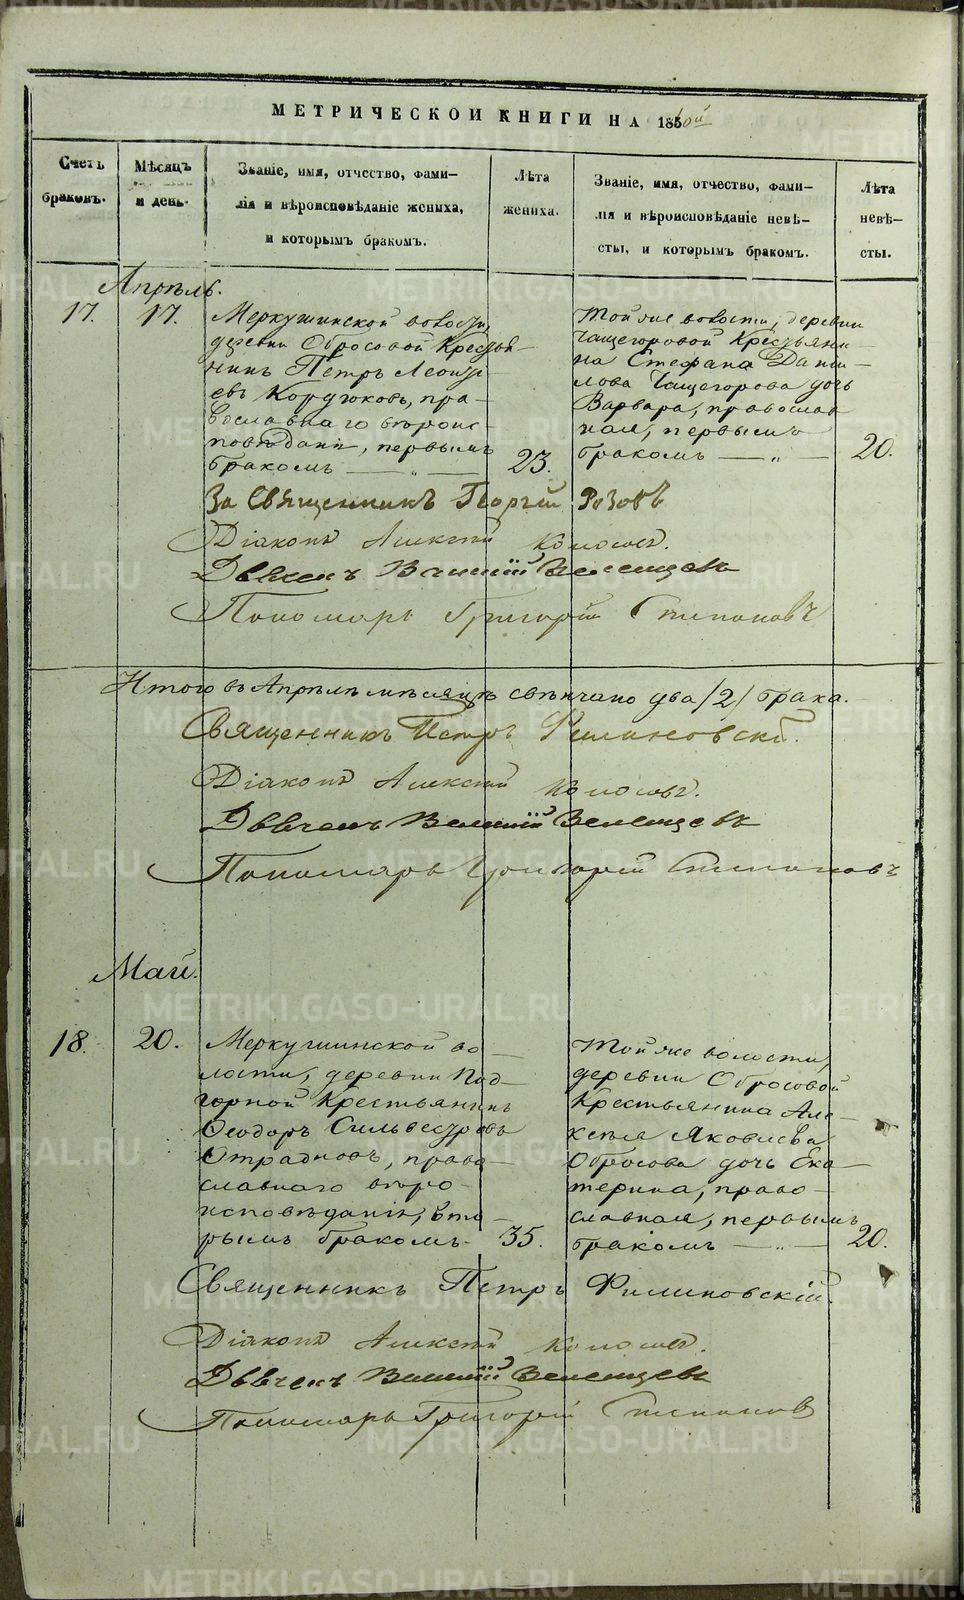 МЕТРИЧЕСКОЙ КНИГИ НА 1860й
Счетъ браковъ.
Мѣсяцъ и день.
Званіе, имя, отчество, фами-
лія и вѣроисповѣданіе жениха,
и которымъ бракомъ.
Лѣта жениха.
Званіе, имя, отчество, фами-
лія и вѣроисповѣданіе невѣ-
сты, и которымъ бракомъ.
Лѣта невѣ-
сты.
Апрѣль.
17.
17.
Меркушинской волости,
деревни Обросовой Крестья
нинъ Петръ Леонтi
евъ Кордюковъ, пра-
вославнаго вѣроис-
повѣданія, первымъ
бракомъ — „ —
23.
Той же волости, деревни
Чащегоровой Крестьяни-
на Стефана Дани-
лова Чащегорова дочь
Варвара, православ
ная, первымъ
бракомъ — „ —
20.
За Священникъ Георгiй Розовъ
Дiаконъ Алексiй
Дьячекъ Василiй
Пономарь Григорiй Степановъ
Итого въ Апрѣлѣ мѣсяцѣ свѣнчано два /2/ брака.
Священникъ Петръ Филиновскiй.
Дiаконъ Алексiй
Дьячекъ Василiй
Пономарь Григорiй Степановъ
Май.
18.
20.
Меркушинской во-
лости, деревни Под-
горной Крестьянинъ
Ѳеодоръ Сильвестровъ
Отрадновъ, право-
славнаго вѣро-
исповѣданiя, вто-
рымъ бракомъ-
35.
Той же волости,
деревни Обросовой
Крестьянина Але-
ксѣя Яковлева
Обросова дочь Ека-
терина, право-
славная, первымъ
бракомъ — „ —
20.
Священникъ Петръ Филиновскiй.
Дiаконъ Алексiй
Дьячекъ Василiй
Пономарь Григорiй Степановъ
METRIKI.GASO-URAL.RU